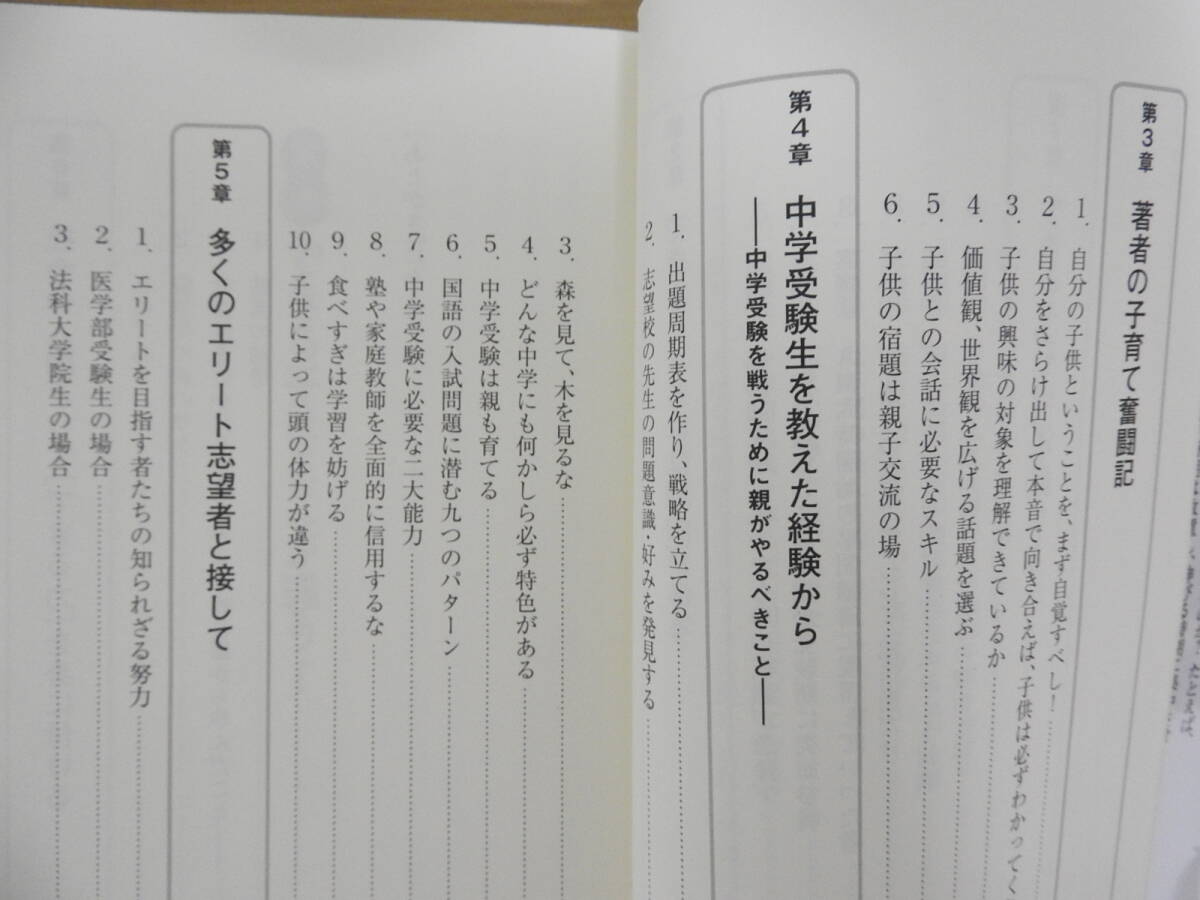 第3章 著者の子育て奮闘記
1. 自分の子供ということを、まず自覚すべし!
2. 自分をさらけ出して本音で向き合えば、子供は必ずわかってく
3. 子供の興味の対象を理解できているか
4. 価値観、世界観を広げる話題を選ぶ
5. 子供との会話に必要なスキル
6. 子供の宿題は親子交流の場
第4章 中学受験生を教えた経験から
――中学受験を戦うために親がやるべきこと――
1. 出題周期表を作り、戦略を立てる
2. 志望校の先生の問題意識・好みを発見する
3. 森を見て、木を見るな
4. どんな中学にも何かしら必ず特色がある
5. 中学受験は親も育てる
6. 国語の入試問題に潜む九つのパターン
7. 中学受験に必要な二大能力
8. 塾や家庭教師を全面的に信用するな
9. 食べすぎは学習を妨げる
10. 子供によって頭の体力が違う
第5章 多くのエリート志望者と接して
1. エリートを目指す者たちの知られざる努力
2. 医学部受験生の場合
3. 法科大学院生の場合